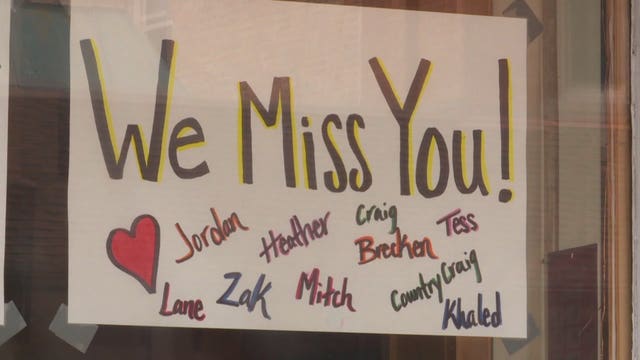 We Miss You!
Jordan Heather Craig Tess
Brecken
Lane Zak Mitch Country Craig
Khaled